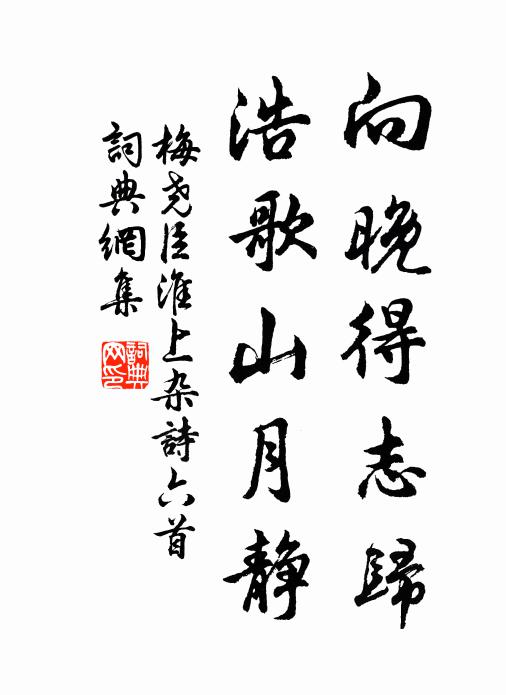 向晚得志歸
浩歌山月静
梅尧臣淮上杂詩六首
詞典網集
詞典网印